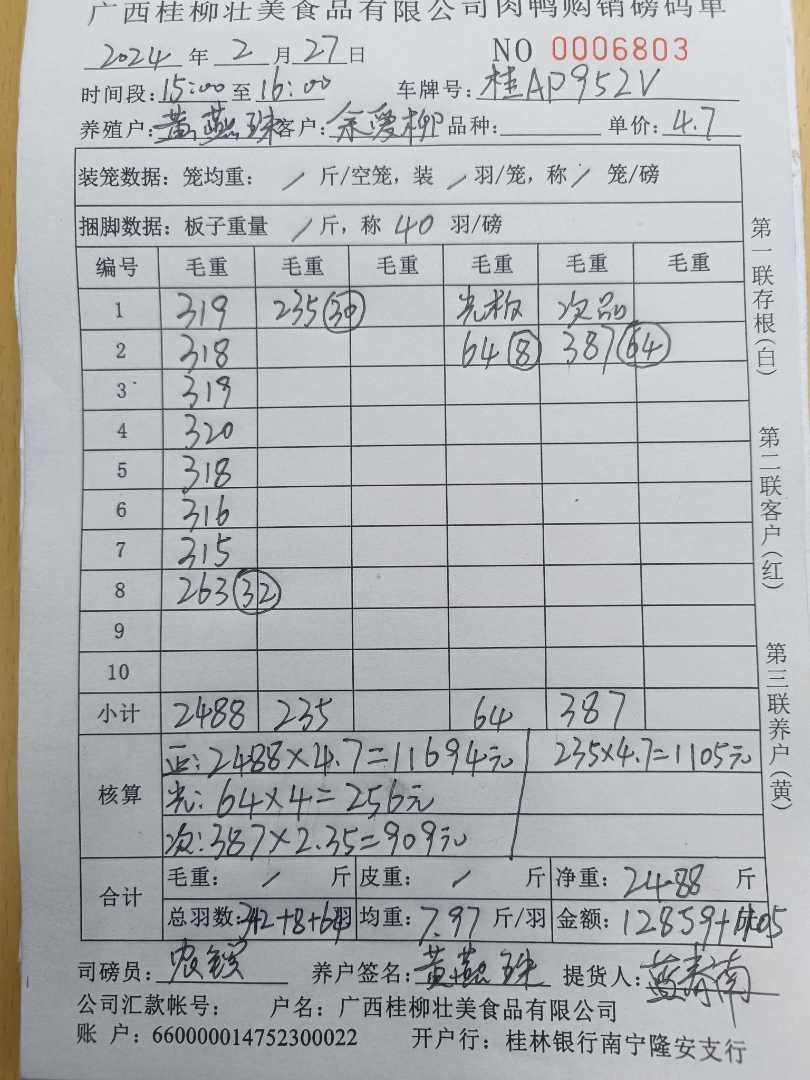 广西桂柳壮美食品有限公司肉鸭购销磅码单
2024 年 2 月 27 日 NO 0006803
时间段: 15:00 至 16:00 车牌号: 桂AP952V
养殖户: 黄燕珠 客户: 余爱柳 品种: 单价: 4.7
装笼数据: 笼均重: / 斤/空笼, 装 / 羽/笼, 称 / 笼/磅
捆脚数据: 板子重量 / 斤, 称 40 羽/磅
编号 毛重 毛重 毛重 毛重 毛重 毛重
1 319 235 30 光板 次品
2 318 64 8 387 64
3 319
4 320
5 318
6 316
7 315
8 263 32
9
10
小计 2488 235 64 387
核算 正: 2488×4.7=11694元 235×4.7=1105元
光: 64×4=256元
次: 387×2.35=909元
合计 毛重: / 斤 皮重: / 斤 净重: 2488 斤
总羽数: 342+8+64 羽 均重: 7.97 斤/羽 金额: 12859+1105
司磅员: 养户签名: 黄燕珠 提货人: 蓝春南
公司汇款帐号: 户名: 广西桂柳壮美食品有限公司
账 户: 660000014752300022 开户行: 桂林银行南宁隆安支行
第一联存根(白)
第二联客户(红)
第三联养户(黄)